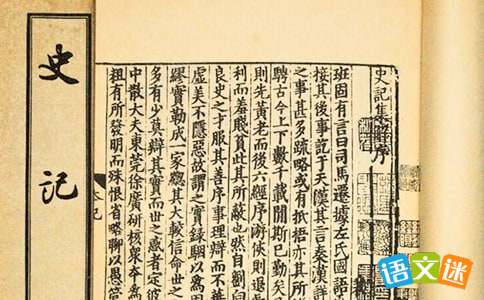 史記集解序
班固有言曰司馬遷據左氏國語
接其後事訖于天漢其言秦漢詳
之事甚多疏略或有抵梧亦其所
騁古今上下數千載閒斯已勤矣
則先黃老而後六經序游俠則退處
利而羞賤貧此其所蔽也然自劉向
良史之才服其善序事理辯而不
虛美不隱惡故謂之實錄駰以為固
繆實勒成一家緫其大較信命世之
多有少莫辯其實而世之惑者定彼
中散大夫東莞徐廣研核衆本為
粗有所發明而殊恨省略聊以愚管
史記
語文迷